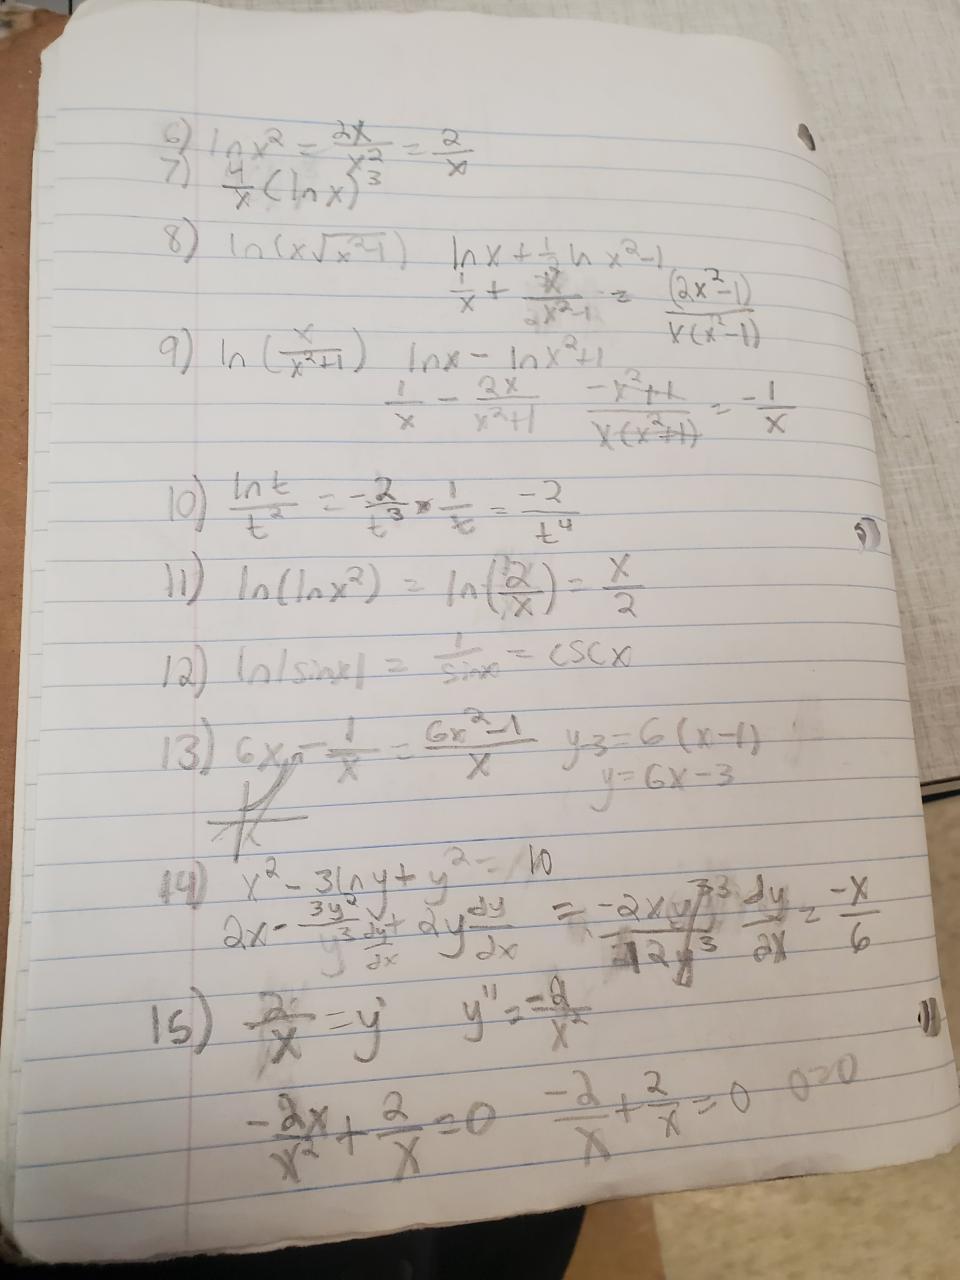 6) ln x² = 2x/x² = 2/x
7) 4/x (ln x)³
8) ln(x√(x²-1)) lnx + ½ ln x²-1
1/x + x/(2x²-1) = (2x²-1)/(x(x²-1))
9) ln(x/(x²+1)) lnx - ln x²+1
1/x - 2x/(x²+1) (-x²+1)/(x(x²+1)) = -1/x
10) ln t/t² = -2/t³ * 1/t = -2/t⁴
11) ln(lnx²) = ln(2/x) = x/2
12) ln|sinx| = 1/sinx = cscx
13) 6x - 1/x = (6x²-1)/x y-3 = 6(x-1)
y = 6x-3
14) x² - 3lny + y² = 10
2x - 3y²/y³ dy/2x + 2y dy/2x = -2xy³/12y³ dy/2x = -x/6
15) 2/x = y' y'' = -2/x²
-2x/x² + 2/x = 0 -2/x + 2/x = 0 0=0